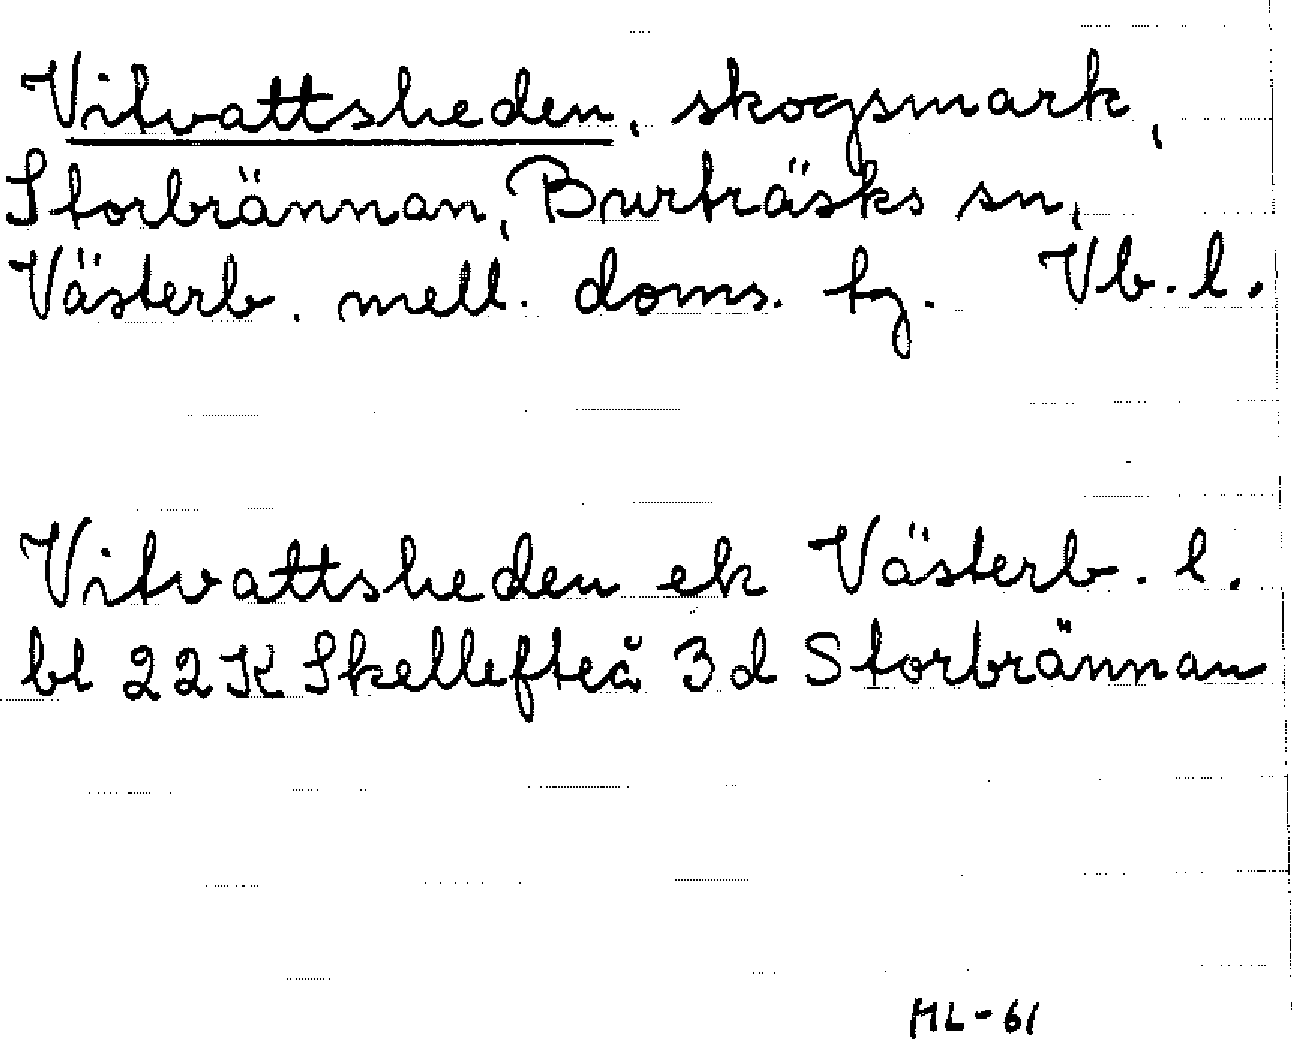 Vitvattsheden, skogsmark,
Storbrännan, Burträsks sn,
Västerb. mell. doms. tg. Vb. l.
Vitvattsheden ek Västerb. l.
bl 22K Skellefteå 3d Storbrännan
ML-61